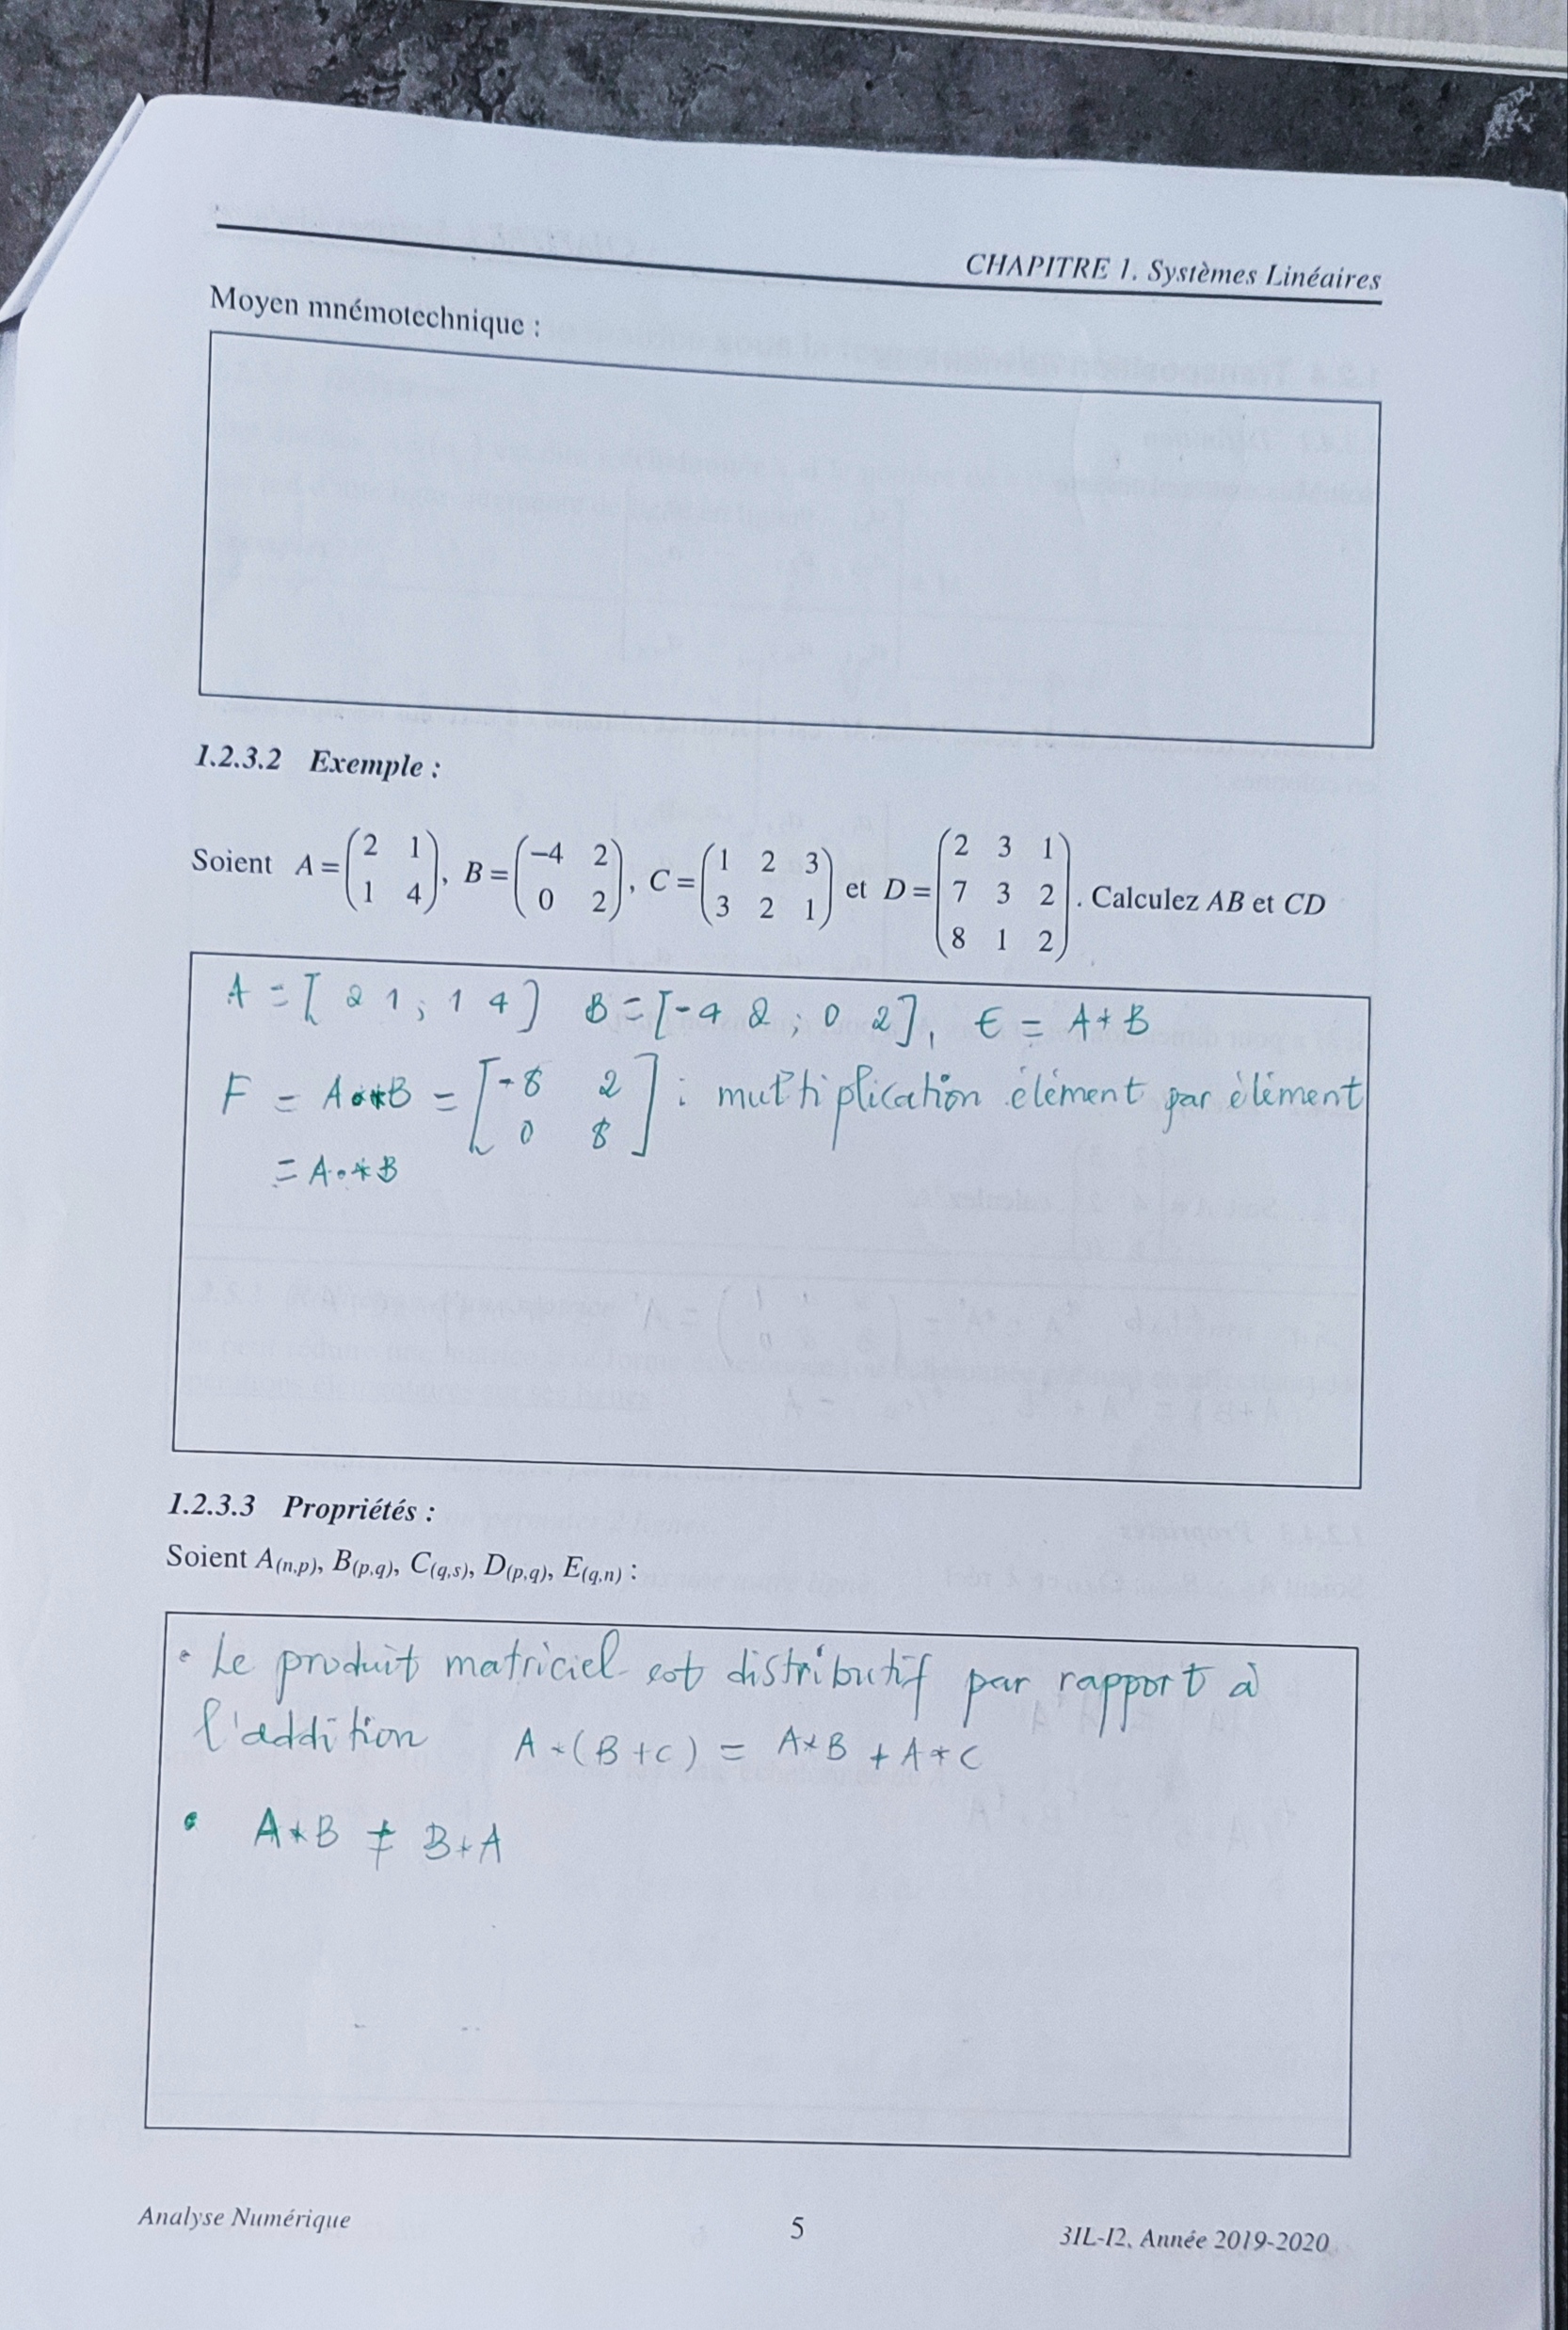 CHAPITRE 1. Systèmes Linéaires
Moyen mnémotechnique :
1.2.3.2 Exemple :
Soient A = (2 1; 1 4), B = (−4 2; 0 2), C = (1 2 3; 3 2 1) et D = (2 3 1; 7 3 2; 8 1 2). Calculez AB et CD
A = [ 2 1 ; 1 4 ] B = [-4 2 ; 0 2], E = A*B
F = A.*B = [-8 2; 0 8] : multiplication élément par élément
= A.*B
1.2.3.3 Propriétés :
Soient A(n,p), B(p,q), C(q,s), D(p,q), E(q,n) :
• Le produit matriciel est distributif par rapport à
l'addition A*(B+C) = A*B + A*C
• A*B ≠ B*A
Analyse Numérique
5
3IL-I2, Année 2019-2020